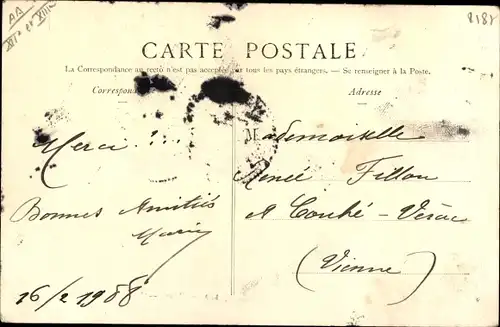 AA
8185
CARTE POSTALE
La Correspondance au recto n'est pas acceptée par tous les pays étrangers. — Se renseigner à la Poste.
Correspondance
Adresse
Merci !...
Bonnes Amitiés
Marie
16/2 1908
Mademoiselle
Renée Fillon
A Couhé-Vérac
(Vienne)